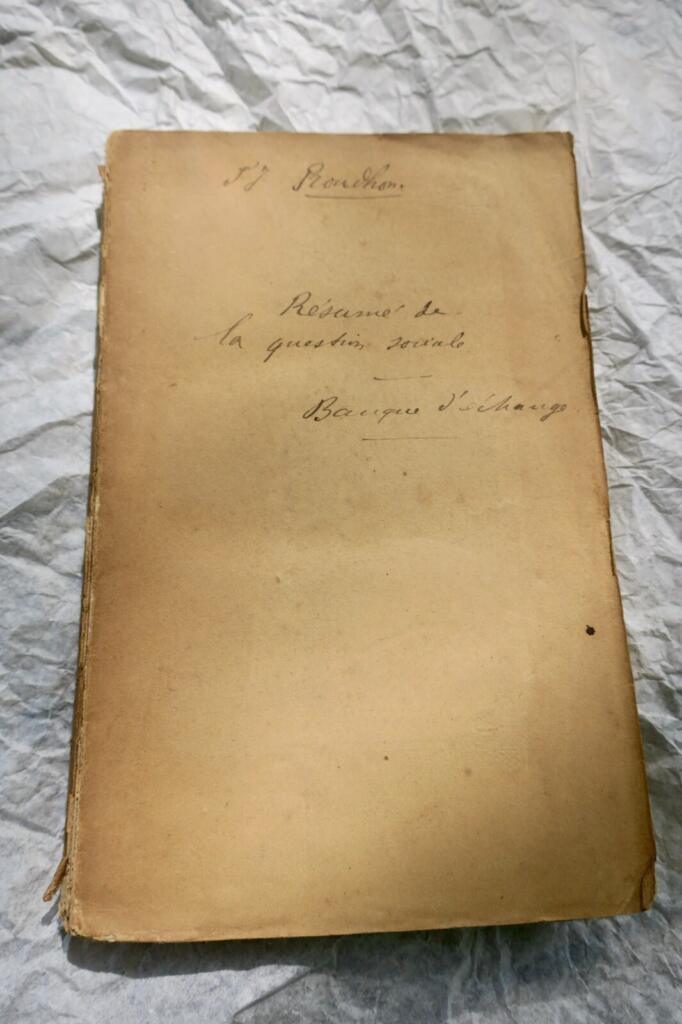 P J Proudhon.
Résumé de
la question sociale
Banque d'échange